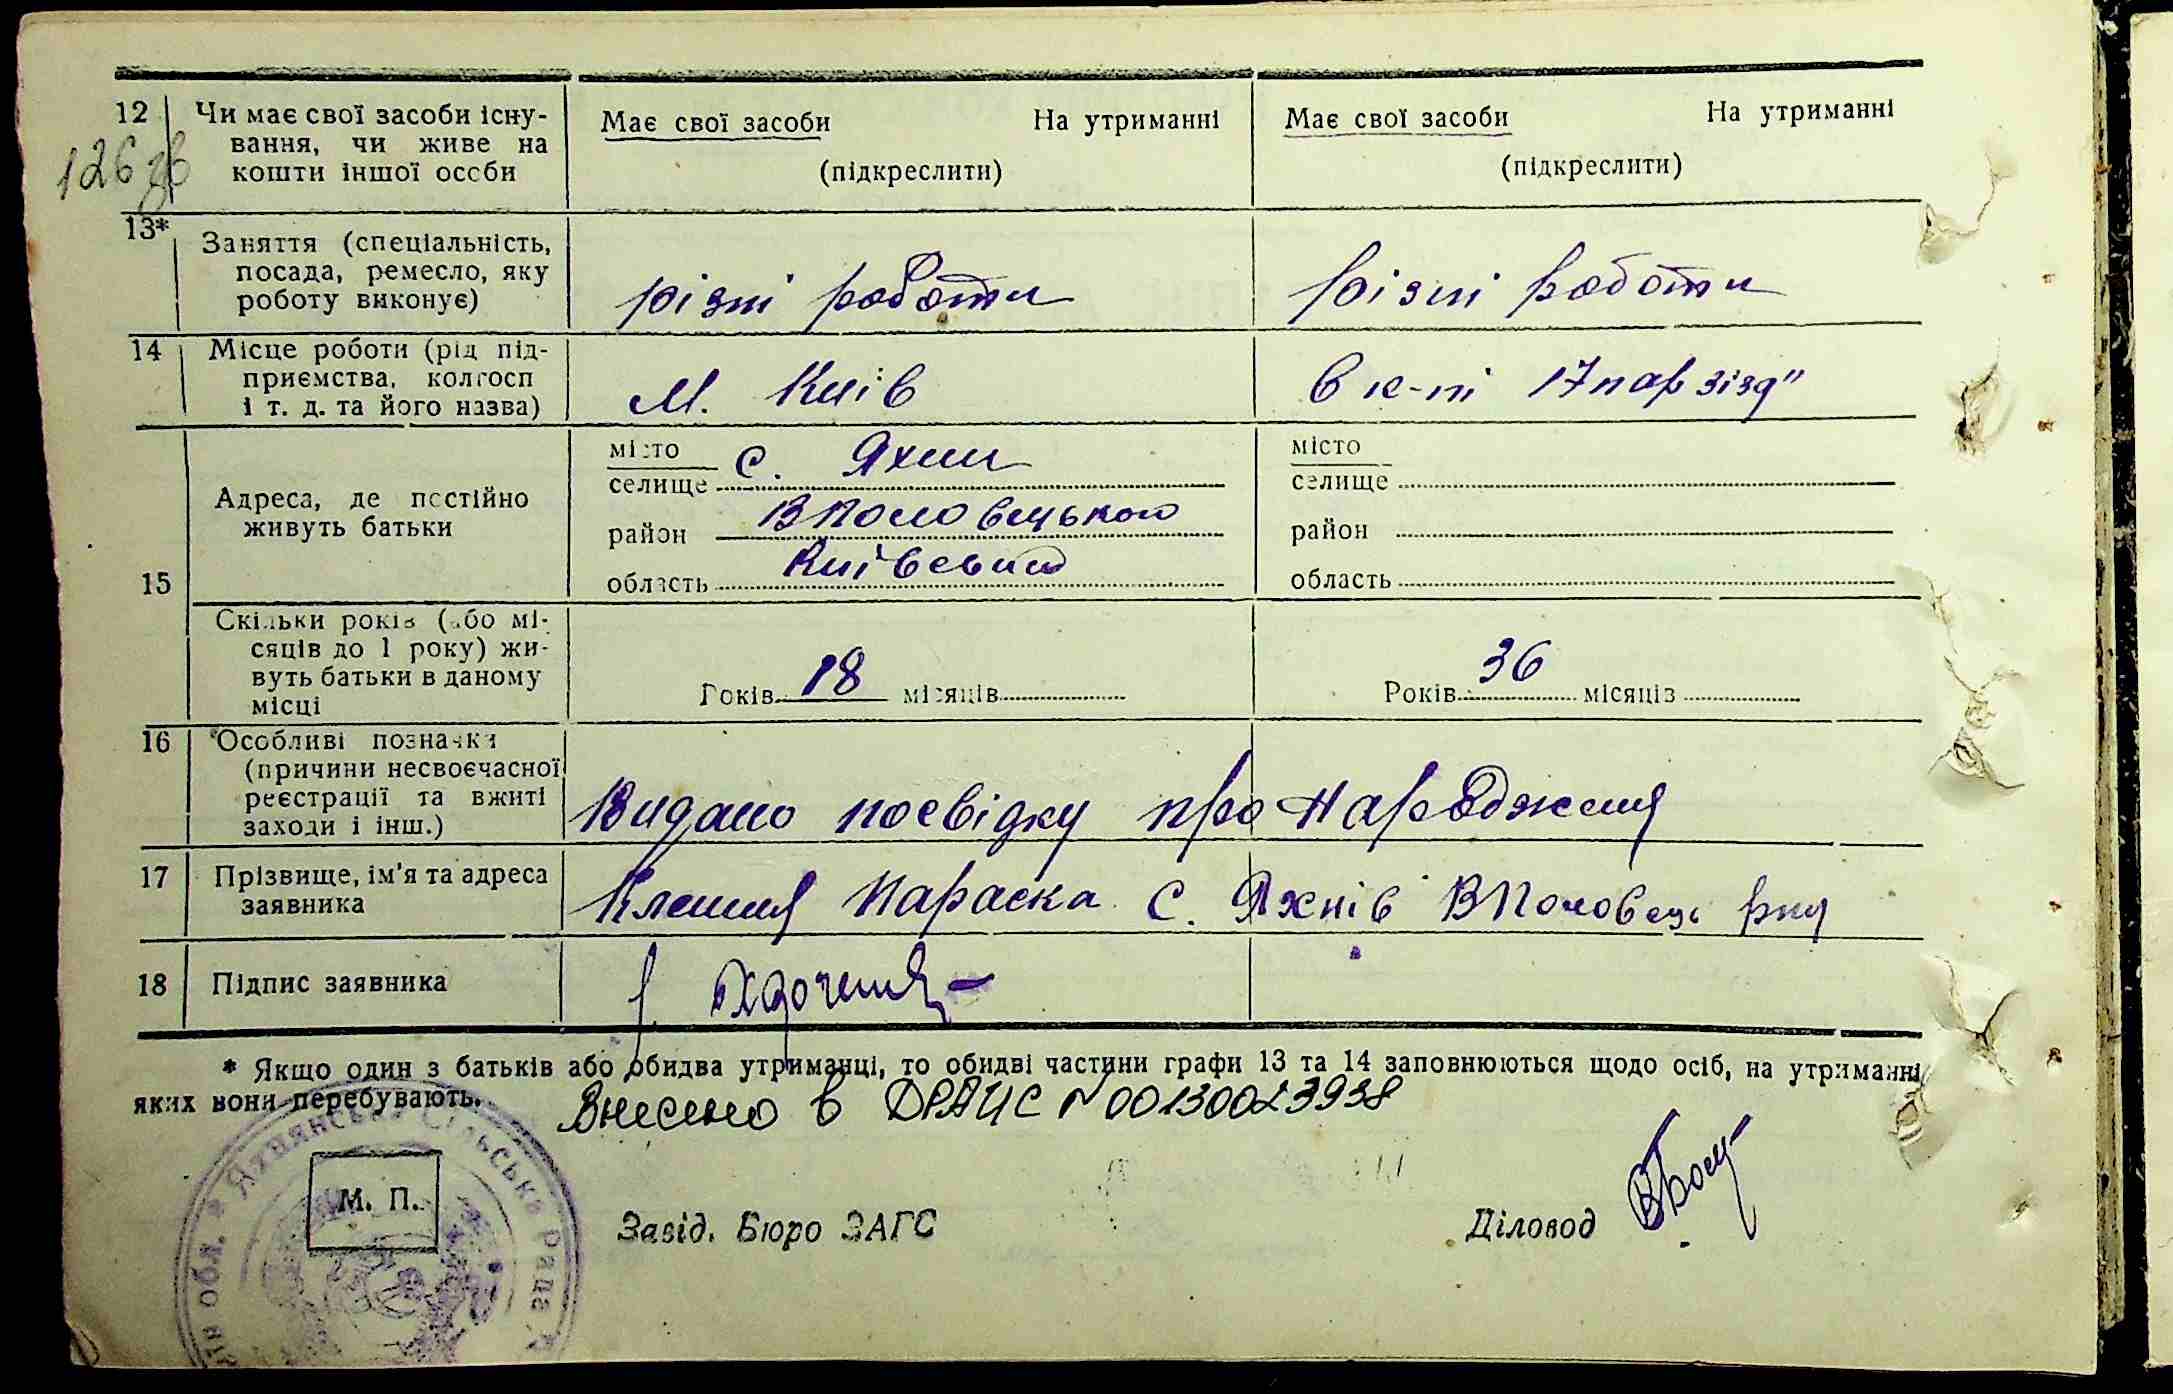 12 Чи має свої засоби існу-
вання, чи живе на
кошти іншої особи
Має свої засоби На утриманні
(підкреслити)
Має свої засоби На утриманні
(підкреслити)
126 зв
13* Заняття (спеціальність,
посада, ремесло, яку
роботу виконує)
різні роботи
різні роботи
14 Місце роботи (рід під-
приємства, колгосп
і т. д. та його назва)
м. Київ
в к-пі 17 пар зізд"
15 Адреса, де постійно
живуть батьки
місто
селище с. Яхни
район ВПоловецького
область
місто
селище
район
область
Скільки років (або мі-
сяців до 1 року) жи-
вуть батьки в даному
місці
Років 18 місяців
Років 36 місяців
16 Особливі позначки
(причини несвоєчасної
реєстрації та вжиті
заходи і інш.)
Видано посвідку про народження
17 Прізвище, ім'я та адреса
заявника
Параска с. Яхнів ВПоловець р-ну
18 Підпис заявника
* Якщо один з батьків або обидва утриманці, то обидві частини графи 13 та 14 заповнюються щодо осіб, на утриманні
яких вони перебувають.
Внесено в ДРАЦС №00130023938
Яхнянська Сільська Рада
обл.
М. П.
Завід. Бюро ЗАГС
Діловод